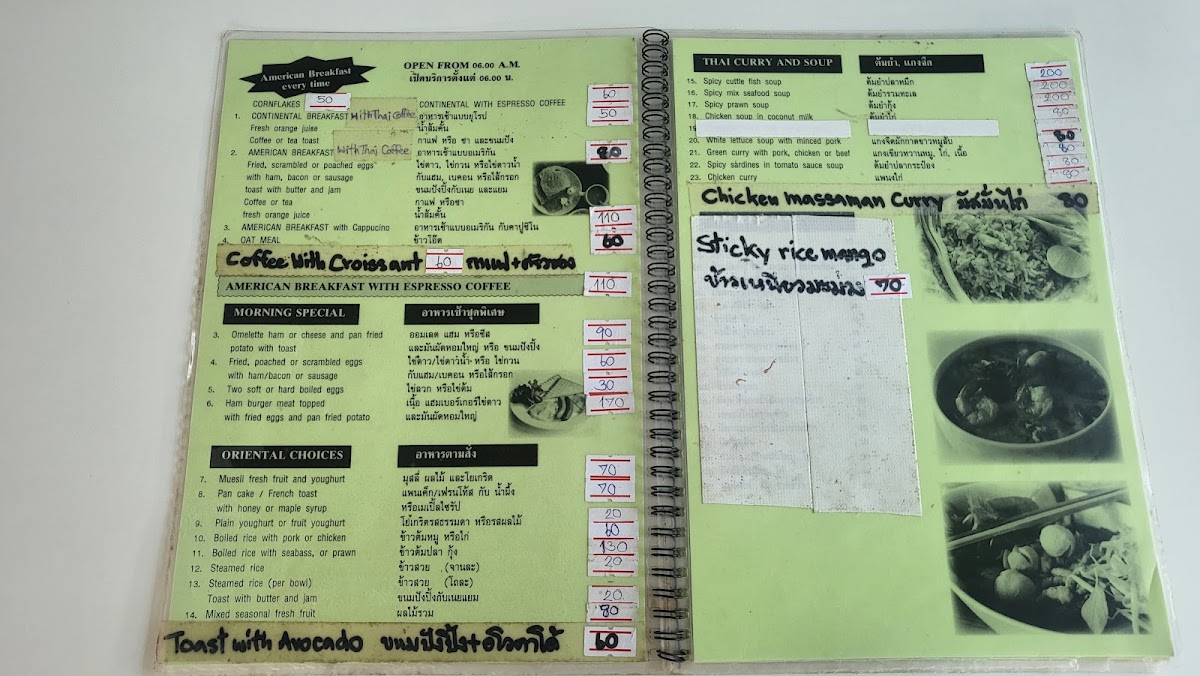 American Breakfast
every time
OPEN FROM 06.00 A.M.
เปิดบริการตั้งแต่ 06.00 น.
CORNFLAKES 50 CONTINENTAL WITH ESPRESSO COFFEE 60
1. CONTINENTAL BREAKFAST With Thai Coffee อาหารเช้าแบบยุโรป 50
Fresh orange juise น้ำส้มคั้น
Coffee or tea toast กาแฟ หรือ ชา และขนมปัง
With Thai Coffee
2. AMERICAN BREAKFAST อาหารเช้าแบบอเมริกัน 80
Fried, scrambled or poached eggs ไข่ดาว, ไข่กวน หรือไข่ดาวน้ำ
with ham, bacon or sausage กับแฮม, เบคอน หรือไส้กรอก
toast with butter and jam ขนมปังปิ้งกับเนย และแยม
Coffee or tea กาแฟ หรือชา
fresh orange juice น้ำส้มคั้น
3. AMERICAN BREAKFAST with Cappucino อาหารเช้าแบบอเมริกัน กับคาปูชิโน 110
4. OAT MEAL ข้าวโอ๊ต 60
Coffee With Croissant 60
AMERICAN BREAKFAST WITH ESPRESSO COFFEE 110
MORNING SPECIAL อาหารเช้าชุดพิเศษ
3. Omelette ham or cheese and pan fried ออมเลต แฮม หรือชีส 90
potato with toast และมันผัดหอมใหญ่ หรือ ขนมปังปิ้ง
4. Fried, poached or scrambled eggs ไข่ดาว/ไข่ดาวน้ำ หรือ ไข่กวน 60
with ham/bacon or sausage กับแฮม/เบคอน หรือไส้กรอก
5. Two soft or hard boiled eggs ไข่ลวก หรือไข่ต้ม 30
6. Ham burger meat topped เนื้อ แฮมเบอร์เกอร์ไข่ดาว 170
with fried eggs and pan fried potato และมันผัดหอมใหญ่
ORIENTAL CHOICES อาหารตามสั่ง
7. Muesli fresh fruit and youghurt มุสลี่ ผลไม้ และโยเกริต 70
8. Pan cake / French toast แพนเค็ก/เฟรนโท้ส กับ น้ำผึ้ง 70
with honey or maple syrup หรือเมเปิ้ลไซรัป
9. Plain youghurt or fruit youghurt โยเกริตรสธรรมดา หรือรสผลไม้ 20
10. Boiled rice with pork or chicken ข้าวต้มหมู หรือไก่ 60
11. Boiled rice with seabass, or prawn ข้าวต้มปลา กุ้ง 130
12. Steamed rice ข้าวสวย (จานละ) 20
13. Steamed rice (per bowl) ข้าวสวย (โถละ)
Toast with butter and jam ขนมปังปิ้งกับเนยแยม 20
14. Mixed seasonal fresh fruit ผลไม้รวม 80
Toast with Avocado ขนมปังปิ้ง+อโวคาโด้ 60
THAI CURRY AND SOUP ต้มยำ, แกงจืด
15. Spicy cuttle fish soup ต้มยำปลาหมึก 200
16. Spicy mix seafood soup ต้มยำรวมทะเล 200
17. Spicy prawn soup ต้มยำกุ้ง 200
18. Chicken soup in coconut milk ต้มข่าไก่ 80
19
20. White lettuce soup with minced pork แกงจืดผักกาดขาวหมูสับ 80
21. Green curry with pork, chicken or beef แกงเขียวหวานหมู, ไก่, เนื้อ 80
22. Spicy sardines in tomato sauce soup ต้มยำปลากระป๋อง 80
23. Chicken curry แพนงไก่ 80
Chicken massaman Curry มัสมั่นไก่ 80
Sticky rice mango
ข้าวเหนียวมะม่วง 70